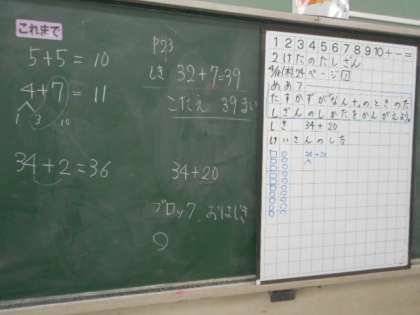 これまで
5+5=10
4+7=11
1 3 10
34+2=36
P23
しき 32+7=39
こたえ 39まい
34+20
ブロック、おはじき
1 2 3 4 5 6 7 8 9 10 + - =
2けたのたしざん
24ページ
めあて
たすかずがなん十のときのた
しざんのしかたをかんがえよう。
しき 34+20
けいさんのしかた
34+20